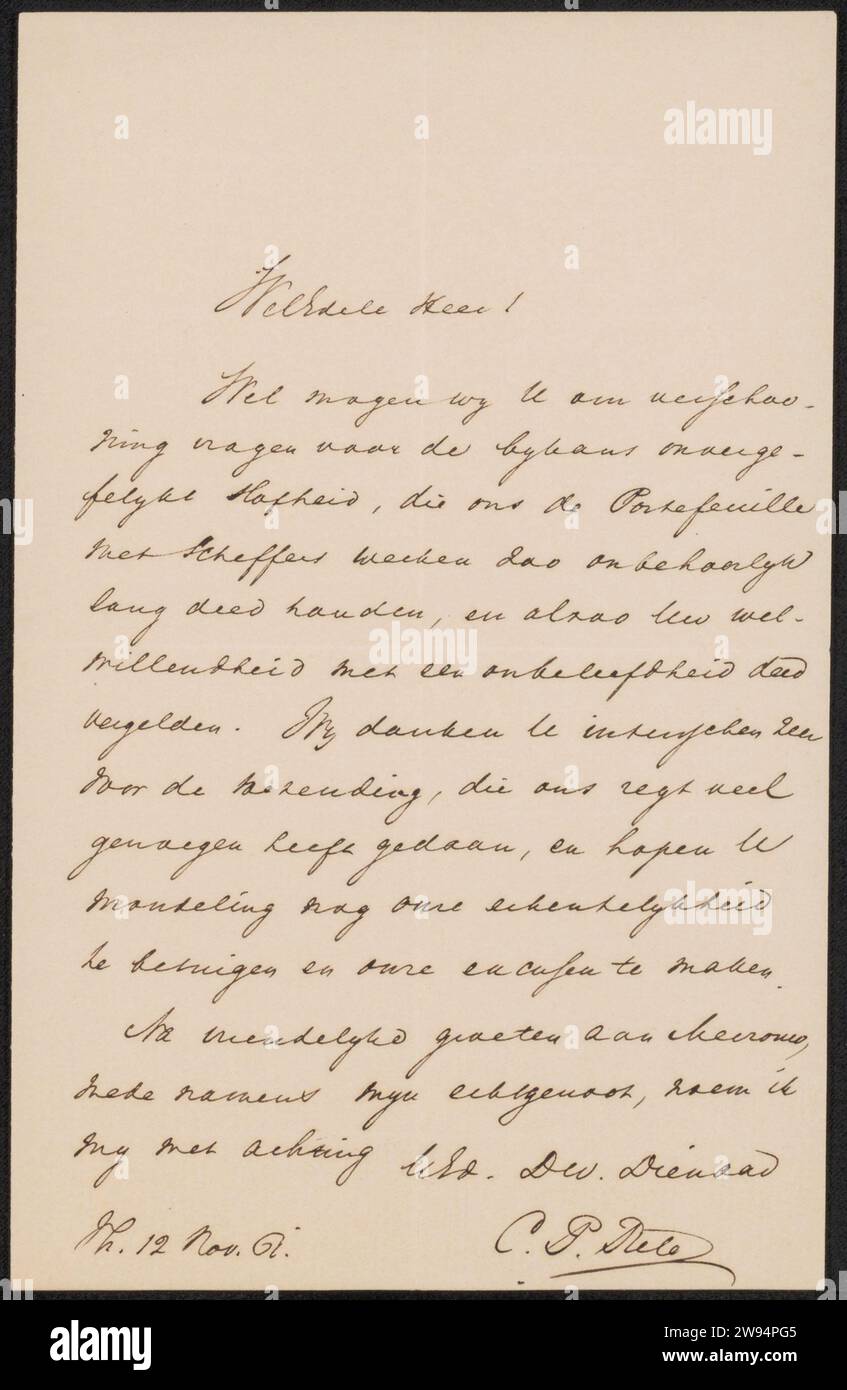 WelEdele Heer!
Wel mogen wy U om verschoo-
ning vragen voor de bykans onverge-
felyke slofheid, die ons de Portefeuille
met Scheffers werken zoo onbehoorlyk
lang deed houden, en alzoo Uw wel-
willendheid met een onbeleefdheid deed
vergelden. Wy danken U intusschen zeer
voor de toezending, die ons regt veel
genoegen heeft gedaan, en hopen U
mondeling nog onze erkentelykheid
te betuigen en onze excusen te maken.
Na vriendelyke groeten aan Mevrouw,
mede namens myn echtgenoot, noem ik
my met achting UEd. Dw. Dienaar
12 Nov. 61.
C. P. Tiele
alamy
alamy
Image ID: 2W94PG5
www.alamy.com